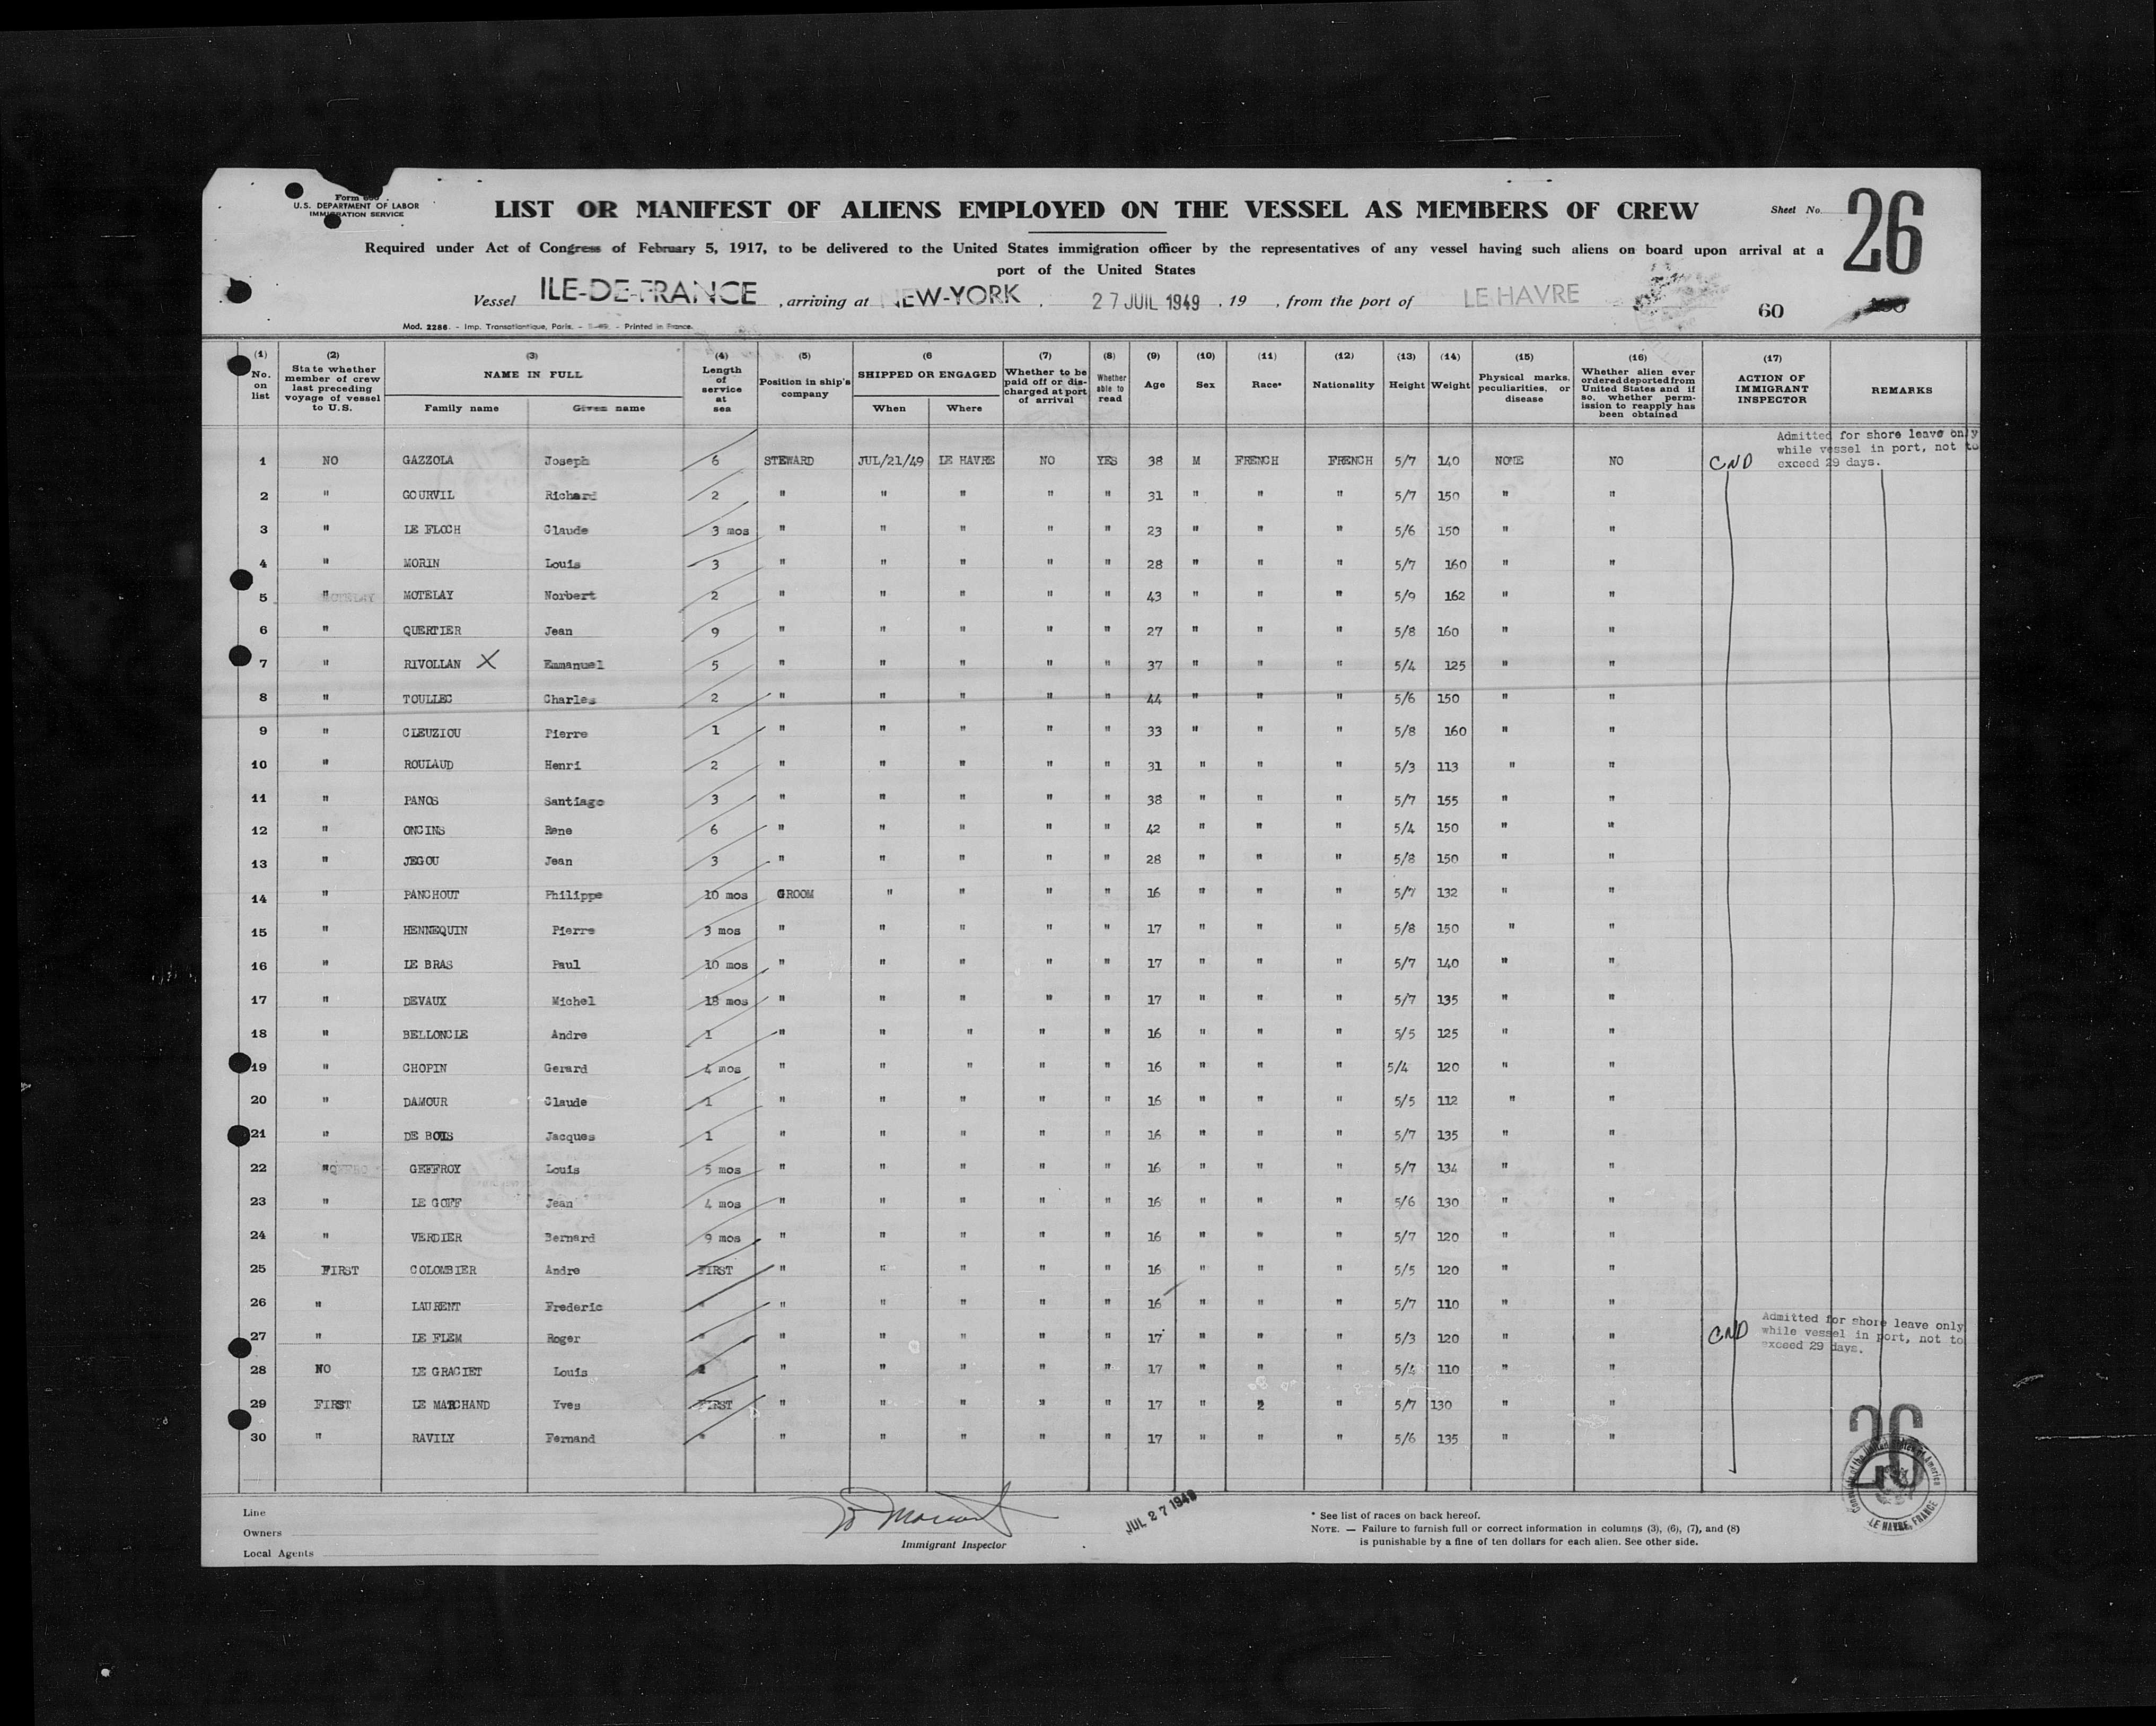 Form 680
U.S. DEPARTMENT OF LABOR
IMMIGRATION SERVICE
LIST OR MANIFEST OF ALIENS EMPLOYED ON THE VESSEL AS MEMBERS OF CREW
Sheet No. 26
Required under Act of Congress of February 5, 1917, to be delivered to the United States immigration officer by the representatives of any vessel having such aliens on board upon arrival at a
port of the United States
Vessel ILE-DE-FRANCE , arriving at NEW-YORK , 27 JUIL 1949 , 19 , from the port of LE HAVRE
60
Mod. 2286. - Imp. Transatlantique, Paris. - Printed in France.
(1) No. on list (2) State whether member of crew last preceding voyage of vessel to U.S. (3) NAME IN FULL Family name Given name (4) Length of service at sea (5) Position in ship's company (6 SHIPPED OR ENGAGED When Where (7) Whether to be paid off or discharged at port of arrival (8) Whether able to read (9) Age (10) Sex (11) Race* (12) Nationality (13) Height (14) Weight (15) Physical marks, peculiarities, or disease (16) Whether alien ever ordered deported from United States and if so, whether permission to reapply has been obtained (17) ACTION OF IMMIGRANT INSPECTOR REMARKS
Admitted for shore leave only while vessel in port, not to exceed 29 days.
1 NO GAZZOLA Joseph 6 STEWARD JUL/21/49 LE HAVRE NO YES 38 M FRENCH FRENCH 5/7 140 NONE NO CND
2 " GOURVIL Richard 2 " " " " " 31 " " " 5/7 150 " "
3 " LE FLOCH Claude 3 mos " " " " " 23 " " " 5/6 150 " "
4 " MORIN Louis 3 " " " " " 28 " " " 5/7 160 " "
5 " MOTELAY Norbert 2 " " " " " 43 " " " 5/9 162 " "
6 " QUERTIER Jean 9 " " " " " 27 " " " 5/8 160 " "
7 " RIVOLLAN X Emmanuel 5 " " " " " 37 " " " 5/4 125 " "
8 " TOULLEC Charles 2 " " " " " 44 " " " 5/6 150 " "
9 " CLEUZIOU Pierre 1 " " " " " 33 " " " 5/8 160 " "
10 " ROULAUD Henri 2 " " " " " 31 " " " 5/3 113 " "
11 " PANOS Santiago 3 " " " " " 38 " " " 5/7 155 " "
12 " ONCINS Rene 6 " " " " " 42 " " " 5/4 150 " "
13 " JEGOU Jean 3 " " " " " 28 " " " 5/8 150 " "
14 " PANCHOUT Philippe 10 mos GROOM " " " " 16 " " " 5/7 132 " "
15 " HENNEQUIN Pierre 3 mos " " " " " 17 " " " 5/8 150 " "
16 " LE BRAS Paul 10 mos " " " " " 17 " " " 5/7 140 " "
17 " DEVAUX Michel 18 mos " " " " " 17 " " " 5/7 135 " "
18 " BELLONCLE Andre 1 " " " " " 16 " " " 5/5 125 " "
19 " CHOPIN Gerard 4 mos " " " " " 16 " " " 5/4 120 " "
20 " DAMOUR Claude 1 " " " " " 16 " " " 5/5 112 " "
21 " DE BOIS Jacques 1 " " " " " 16 " " " 5/7 135 " "
22 " GEFFROY Louis 5 mos " " " " " 16 " " " 5/7 134 " "
23 " LE GOFF Jean 4 mos " " " " " 16 " " " 5/6 130 " "
24 " VERDIER Bernard 9 mos " " " " " 16 " " " 5/7 120 " "
25 FIRST COLOMBIER Andre FIRST " " " " " 16 " " " 5/5 120 " "
26 " LAURENT Frederic " " " " " " 16 " " " 5/7 110 " "
27 " LE FLEM Roger " " " " " " 17 " " " 5/3 120 " " CND
Admitted for shore leave only while vessel in port, not to exceed 29 days.
28 NO LE GRACIET Louis " " " " " 17 " " " 5/4 110 " "
29 FIRST LE MARCHAND Yves FIRST " " " " " 17 " 2 " 5/7 130 " "
30 " RAVILY Fernand " " " " " " 17 " " " 5/6 135 " "
26
Consulate of the United States of America
LE HAVRE, FRANCE
Line
Owners
Local Agents
Immigrant Inspector
JUL 27 1949
* See list of races on back hereof.
NOTE. — Failure to furnish full or correct information in columns (3), (6), (7), and (8)
is punishable by a fine of ten dollars for each alien. See other side.